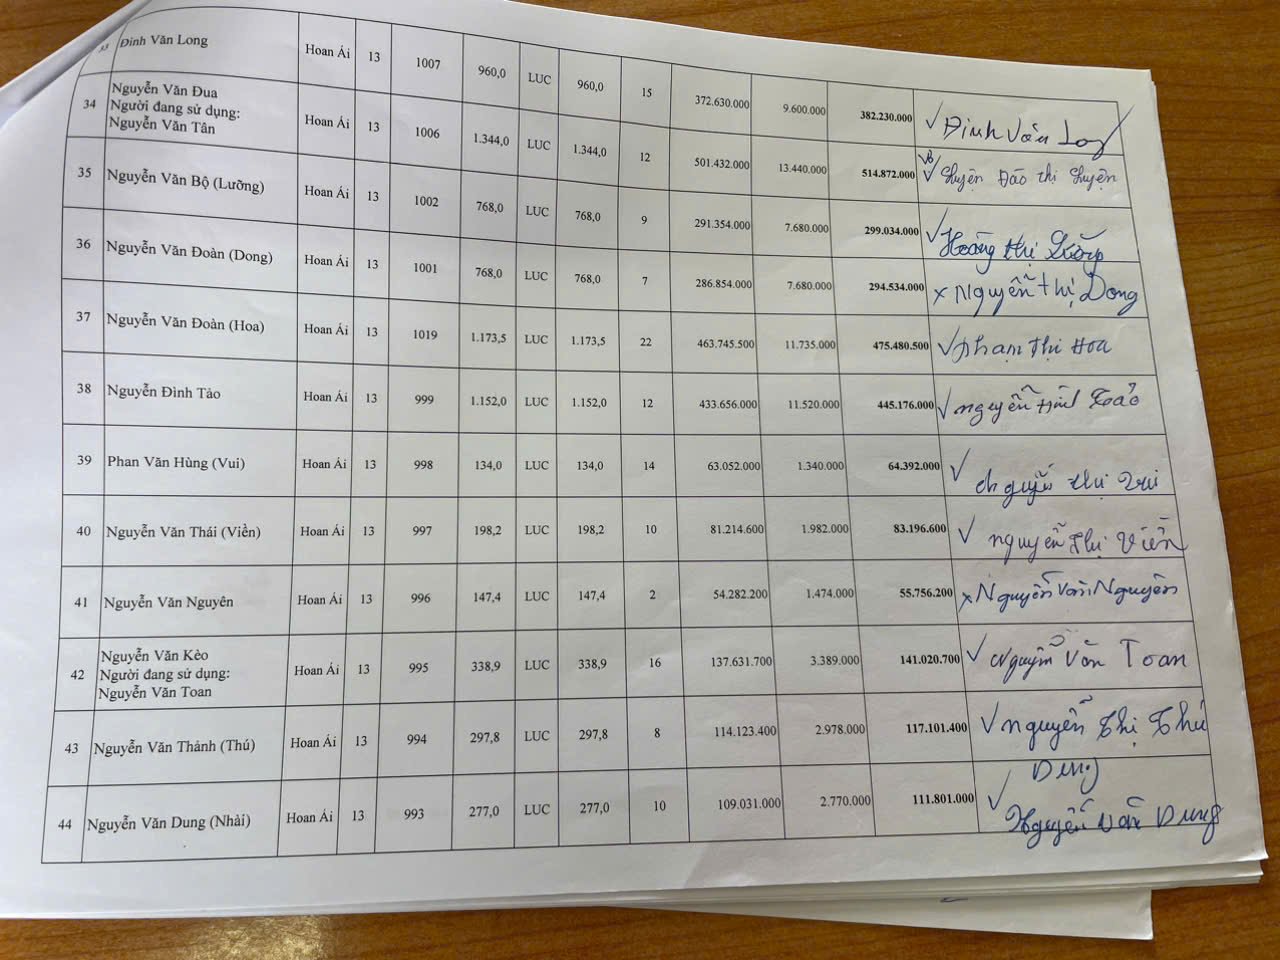 33 Đinh Văn Long Hoan Ái 13 1007 960,0 LUC 960,0 15 372.630.000 9.600.000 382.230.000 Đinh Văn Long
34 Nguyễn Văn Đua
Người đang sử dụng:
Nguyễn Văn Tân Hoan Ái 13 1006 1.344,0 LUC 1.344,0 12 501.432.000 13.440.000 514.872.000 Vợ Luyện Đào Thị Luyện
35 Nguyễn Văn Bộ (Lưỡng) Hoan Ái 13 1002 768,0 LUC 768,0 9 291.354.000 7.680.000 299.034.000 Hoàng Thị
36 Nguyễn Văn Đoàn (Dong) Hoan Ái 13 1001 768,0 LUC 768,0 7 286.854.000 7.680.000 294.534.000 x Nguyễn Thị Dong
37 Nguyễn Văn Đoàn (Hoa) Hoan Ái 13 1019 1.173,5 LUC 1.173,5 22 463.745.500 11.735.000 475.480.500 Phạm Thị Hoa
38 Nguyễn Đình Tảo Hoan Ái 13 999 1.152,0 LUC 1.152,0 12 433.656.000 11.520.000 445.176.000 nguyễn Đình Tảo
39 Phan Văn Hùng (Vui) Hoan Ái 13 998 134,0 LUC 134,0 14 63.052.000 1.340.000 64.392.000 Nguyễn Thị Vui
40 Nguyễn Văn Thái (Viền) Hoan Ái 13 997 198,2 LUC 198,2 10 81.214.600 1.982.000 83.196.600 nguyễn Thị Viền
41 Nguyễn Văn Nguyên Hoan Ái 13 996 147,4 LUC 147,4 2 54.282.200 1.474.000 55.756.200 x Nguyễn Văn Nguyên
42 Nguyễn Văn Kèo
Người đang sử dụng:
Nguyễn Văn Toan Hoan Ái 13 995 338,9 LUC 338,9 16 137.631.700 3.389.000 141.020.700 Nguyễn Văn Toan
43 Nguyễn Văn Thảnh (Thú) Hoan Ái 13 994 297,8 LUC 297,8 8 114.123.400 2.978.000 117.101.400 nguyễn Thị Thú
44 Nguyễn Văn Dung (Nhải) Hoan Ái 13 993 277,0 LUC 277,0 10 109.031.000 2.770.000 111.801.000 Dung
Nguyễn Văn Dung